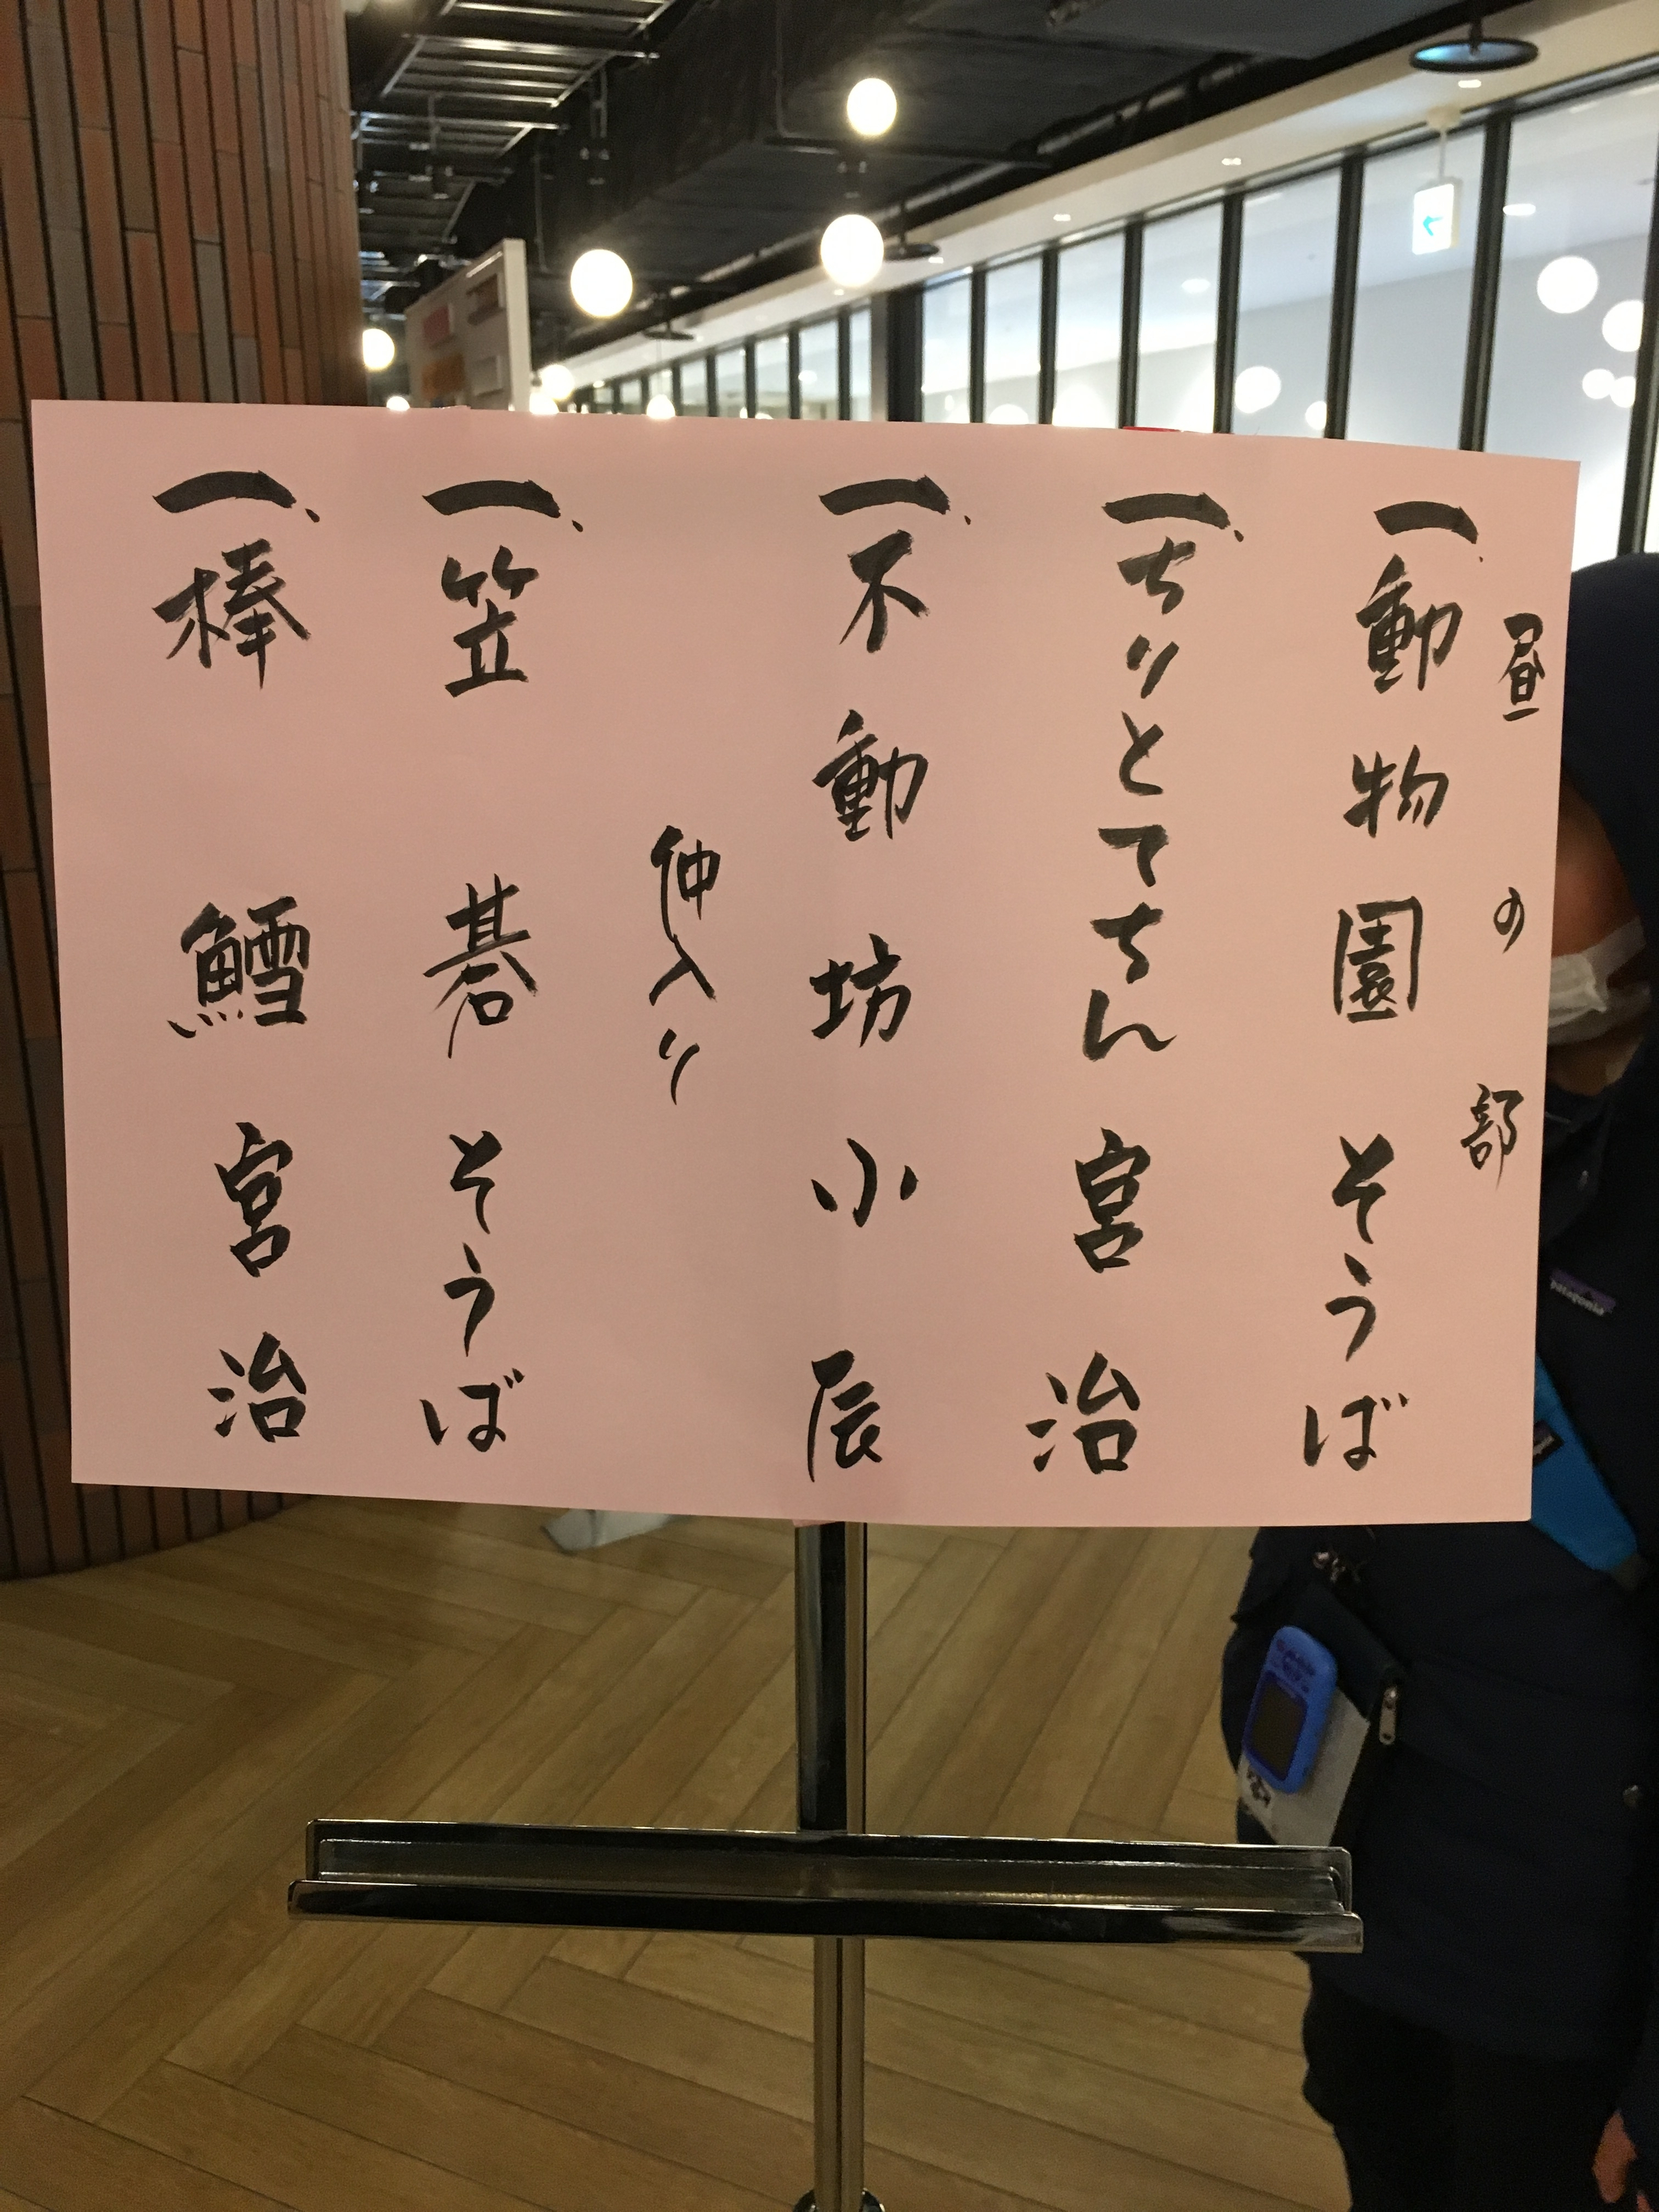 昼の部
一、動物園 そうば
一、ちりとてちん 宮治
一、不動坊 小辰
仲入り
一、笠碁 そうば
一、棒鱈 宮治
patagonia